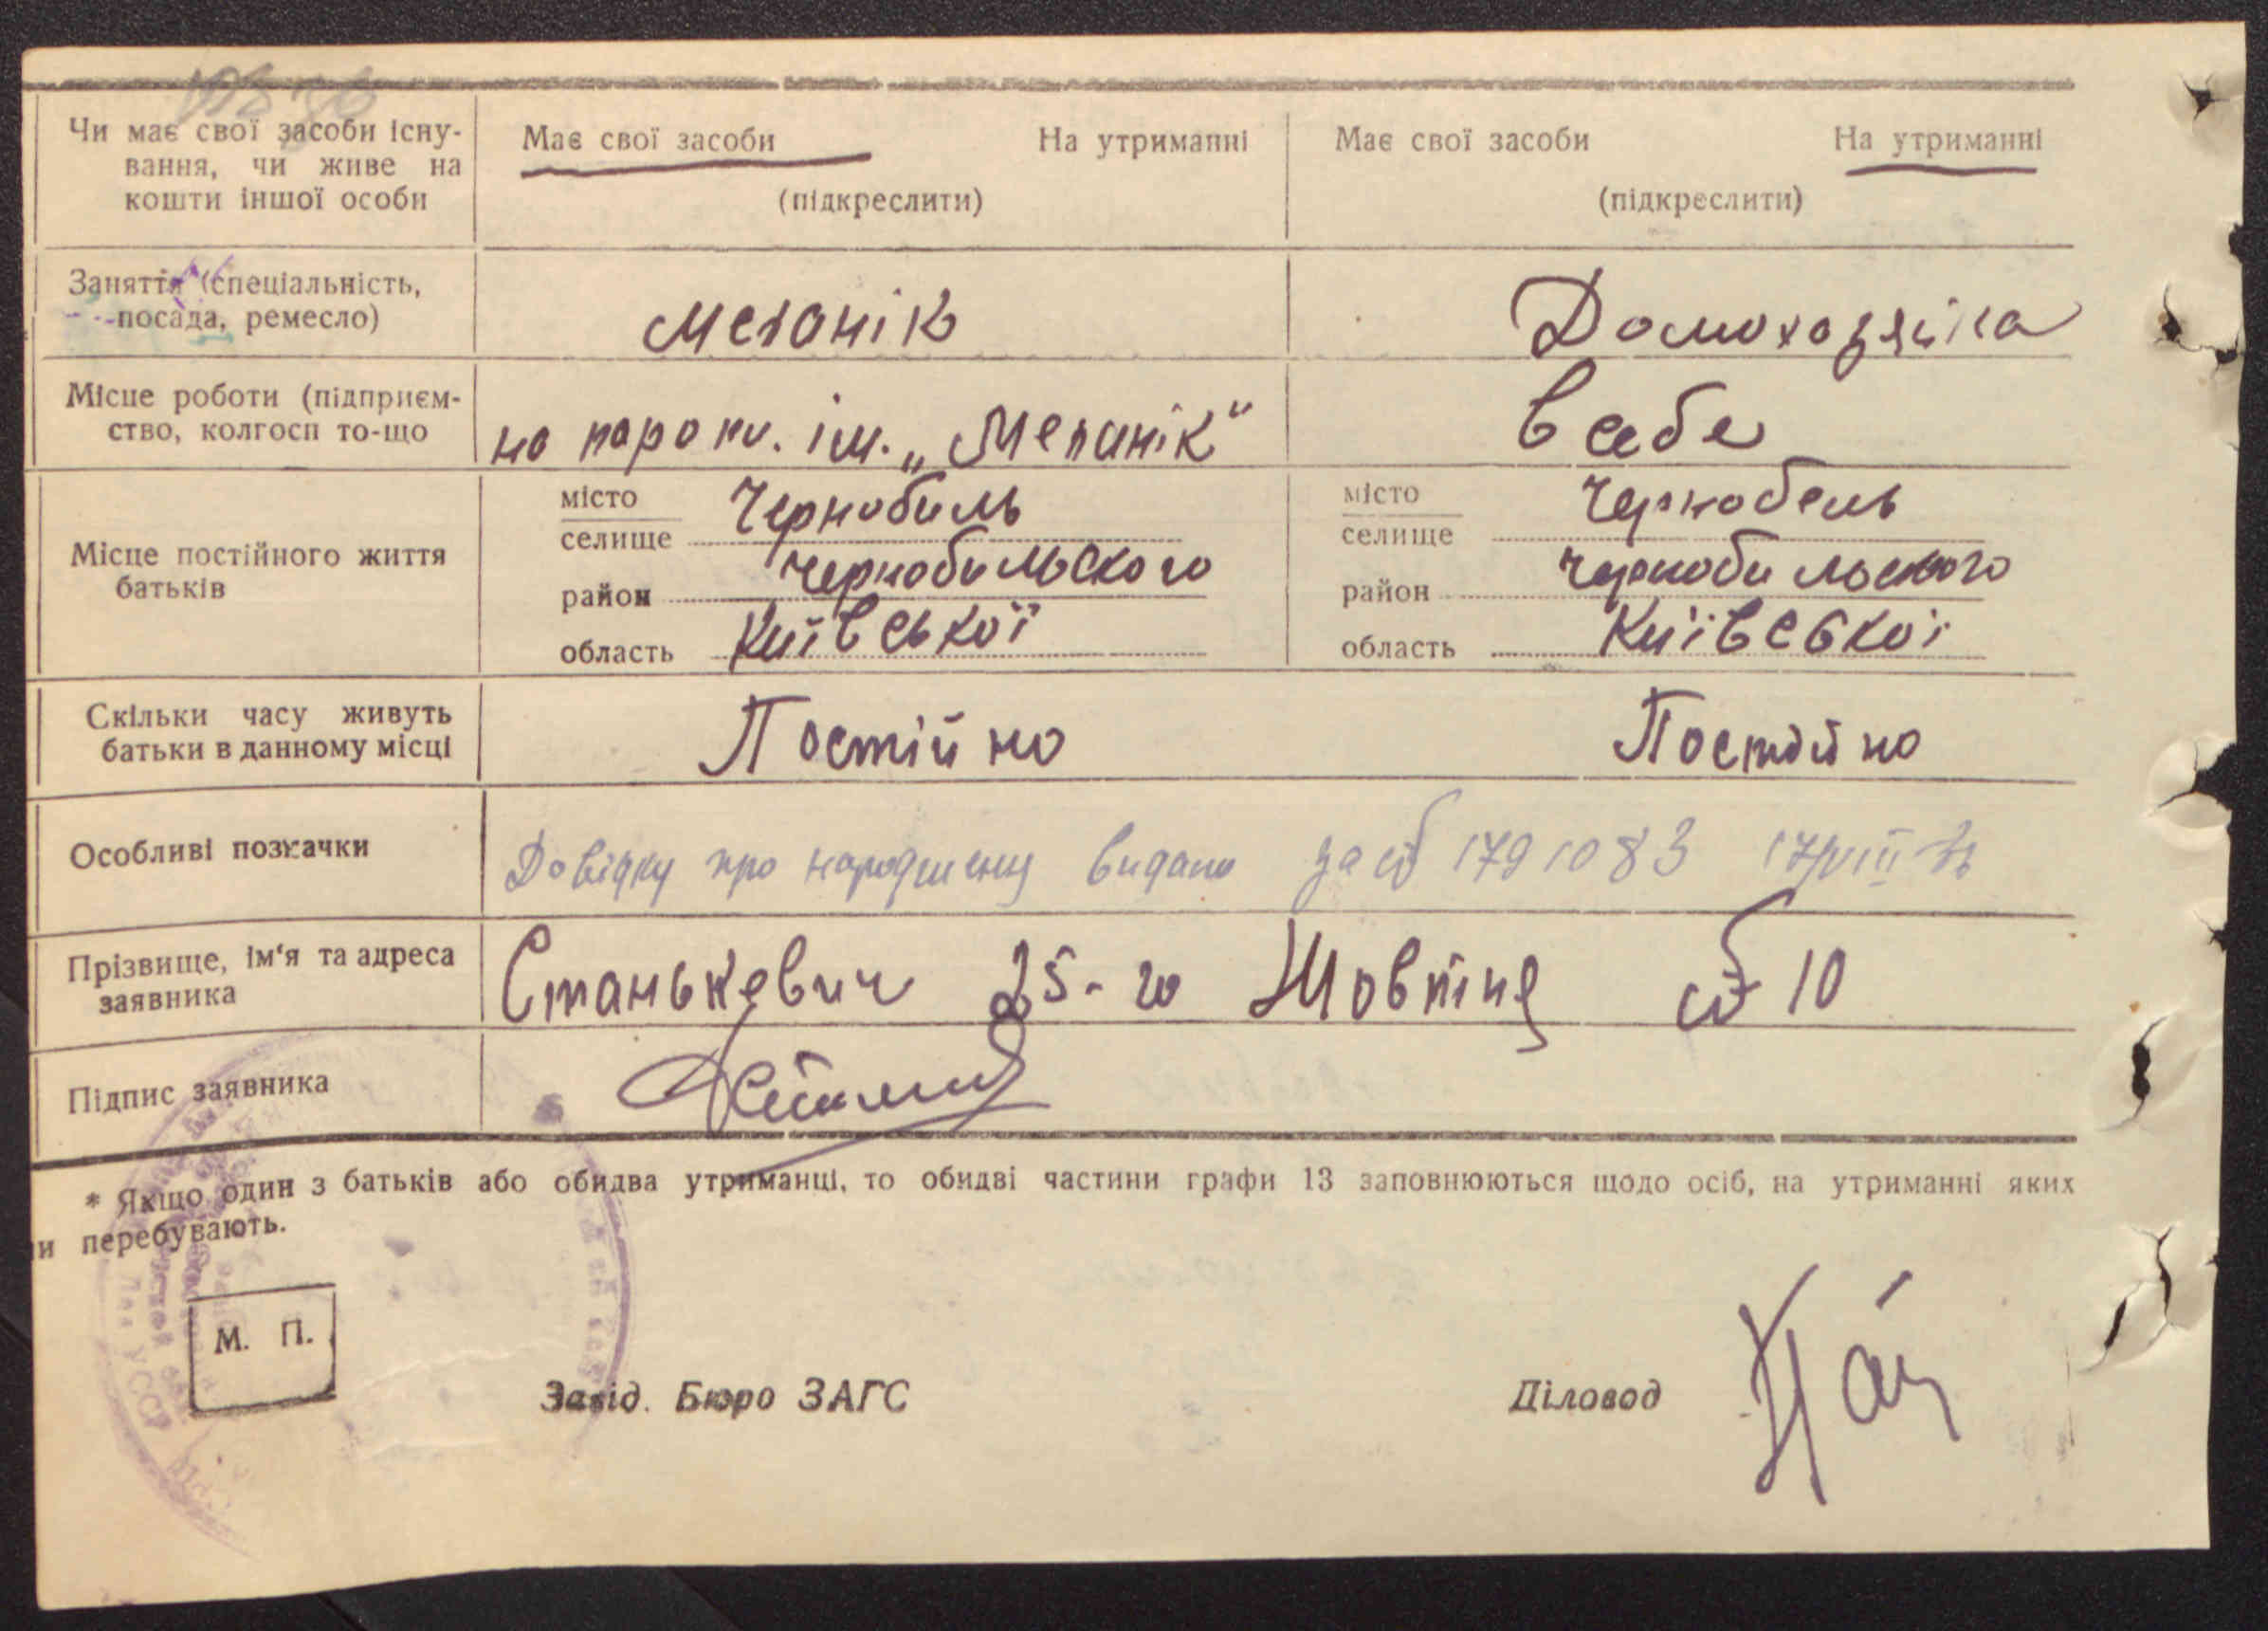 Чи має свої засоби існу-
вання, чи живе на
кошти іншої особи
Має свої засоби На утриманні
(підкреслити)
Має свої засоби На утриманні
(підкреслити)
Заняття (спеціальність,
посада, ремесло)
механік
Домохазяїка
Місце роботи (підприєм-
ство, колгосп то-що
на паропл. ім. „Механік"
в себе
Місце постійного життя
батьків
місто
селище Чернобиль
район Чернобильского
область Київської
місто
селище Чернобель
район Чернобильского
область Київської
Скільки часу живуть
батьки в данному місці
Постійно
Постійно
Особливі позначки
Довідку про народження видано за № 1791083 17/VIII
Прізвище, ім'я та адреса
заявника
Станькевич 25-го Жовтня № 10
Підпис заявника
* Якщо один з батьків або обидва утриманці, то обидві частини графи 13 заповнюються щодо осіб, на утриманні яких
и перебувають.
М. П.
Завід. Бюро ЗАГС
Діловод